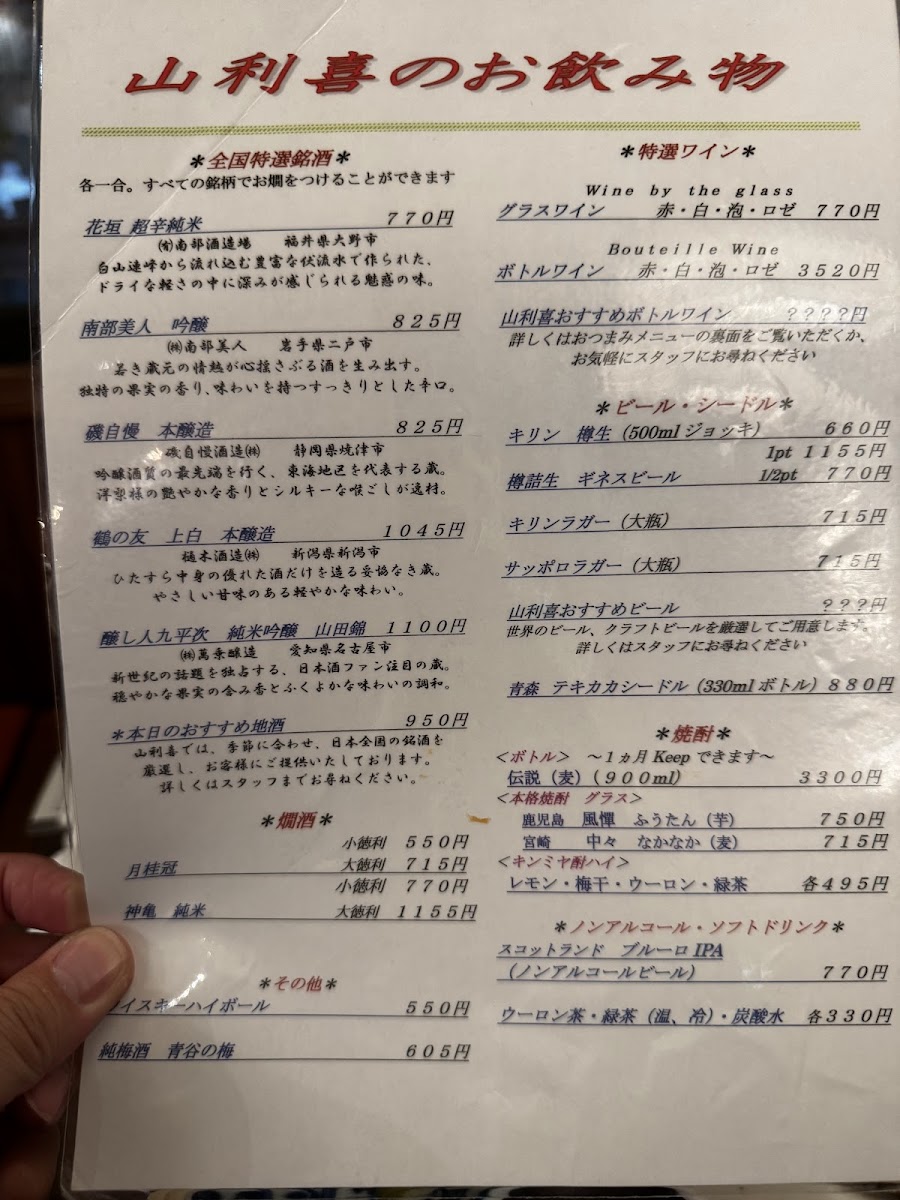 山利喜のお飲み物
＊全国特選銘酒＊
各一合。すべての銘柄でお燗をつけることができます
花垣 超辛純米 ７７０円
㈲南部酒造場 福井県大野市
白山連峰から流れ込む豊富な伏流水で作られた、
ドライな軽さの中に深みが感じられる魅惑の味。
南部美人 吟醸 ８２５円
㈱南部美人 岩手県二戸市
若き蔵元の情熱が心揺さぶる酒を生み出す。
独特の果実の香り、味わいを持つすっきりとした辛口。
磯自慢 本醸造 ８２５円
磯自慢酒造㈱ 静岡県焼津市
吟醸酒質の最先端を行く、東海地区を代表する蔵。
洋梨様の艶やかな香りとシルキーな喉ごしが逸材。
鶴の友 上白 本醸造 １０４５円
樋木酒造㈱ 新潟県新潟市
ひたすら中身の優れた酒だけを造る妥協なき蔵。
やさしい甘味のある軽やかな味わい。
醸し人九平次 純米吟醸 山田錦 １１００円
㈱萬乗醸造 愛知県名古屋市
新世紀の話題を独占する、日本酒ファン注目の蔵。
穏やかな果実の含み香とふくよかな味わいの調和。
＊本日のおすすめ地酒 ９５０円
山利喜では、季節に合わせ、日本全国の銘酒を
厳選し、お客様にご提供いたしております。
詳しくはスタッフまでお尋ねください。
＊燗酒＊
小徳利 ５５０円
月桂冠 大徳利 ７１５円
小徳利 ７７０円
神亀 純米 大徳利 １１５５円
＊その他＊
イスキーハイボール ５５０円
純梅酒 青谷の梅 ６０５円
＊特選ワイン＊
Wine by the glass
グラスワイン 赤・白・泡・ロゼ ７７０円
Bouteille Wine
ボトルワイン 赤・白・泡・ロゼ ３５２０円
山利喜おすすめボトルワイン ？？？？円
詳しくはおつまみメニューの裏面をご覧いただくか、
お気軽にスタッフにお尋ねください
＊ビール・シードル＊
キリン 樽生（500mlジョッキ） ６６０円
1pt １１５５円
樽詰生 ギネスビール 1/2pt ７７０円
キリンラガー（大瓶） ７１５円
サッポロラガー（大瓶） ７１５円
山利喜おすすめビール ？？？円
世界のビール、クラフトビールを厳選してご用意します。
詳しくはスタッフにお尋ねください
青森 テキカカシードル（330mlボトル）８８０円
＊焼酎＊
＜ボトル＞ ～１ヵ月Keepできます～
伝説（麦）（９００ml） ３３００円
＜本格焼酎 グラス＞
鹿児島 風憚 ふうたん（芋） ７５０円
宮崎 中々 なかなか（麦） ７１５円
＜キンミヤ酎ハイ＞
レモン・梅干・ウーロン・緑茶 各４９５円
＊ノンアルコール・ソフトドリンク＊
スコットランド ブルーロIPA
（ノンアルコールビール） ７７０円
ウーロン茶・緑茶（温、冷）・炭酸水 各３３０円